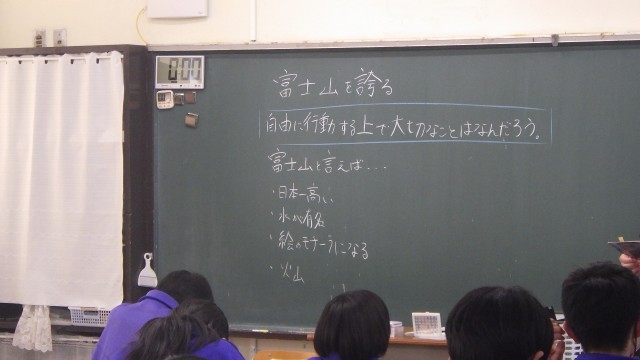 0:00
富士山を誇る
自由に行動する上で大切なことはなんだろう。
富士山と言えば...
・日本一高い
・水が有名
・絵のモチーフになる
・火山